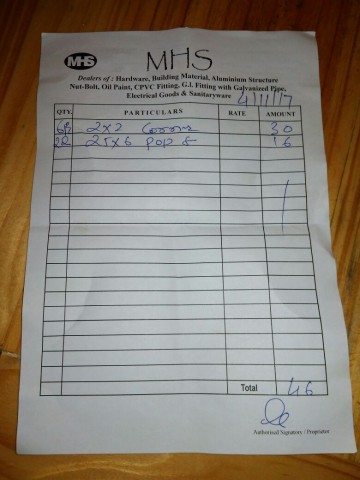 MHS MHS
Dealers of : Hardware, Building Material, Aluminium Structure
Nut-Bolt, Oil Paint, CPVC Fitting, G.I. Fitting with Galvanized Pipe,
Electrical Goods & Sanitaryware
4/11/17
QTY. PARTICULARS RATE AMOUNT
2x2 30
25x6 POP 16
Total 46
Authorised Signatory / Proprietor